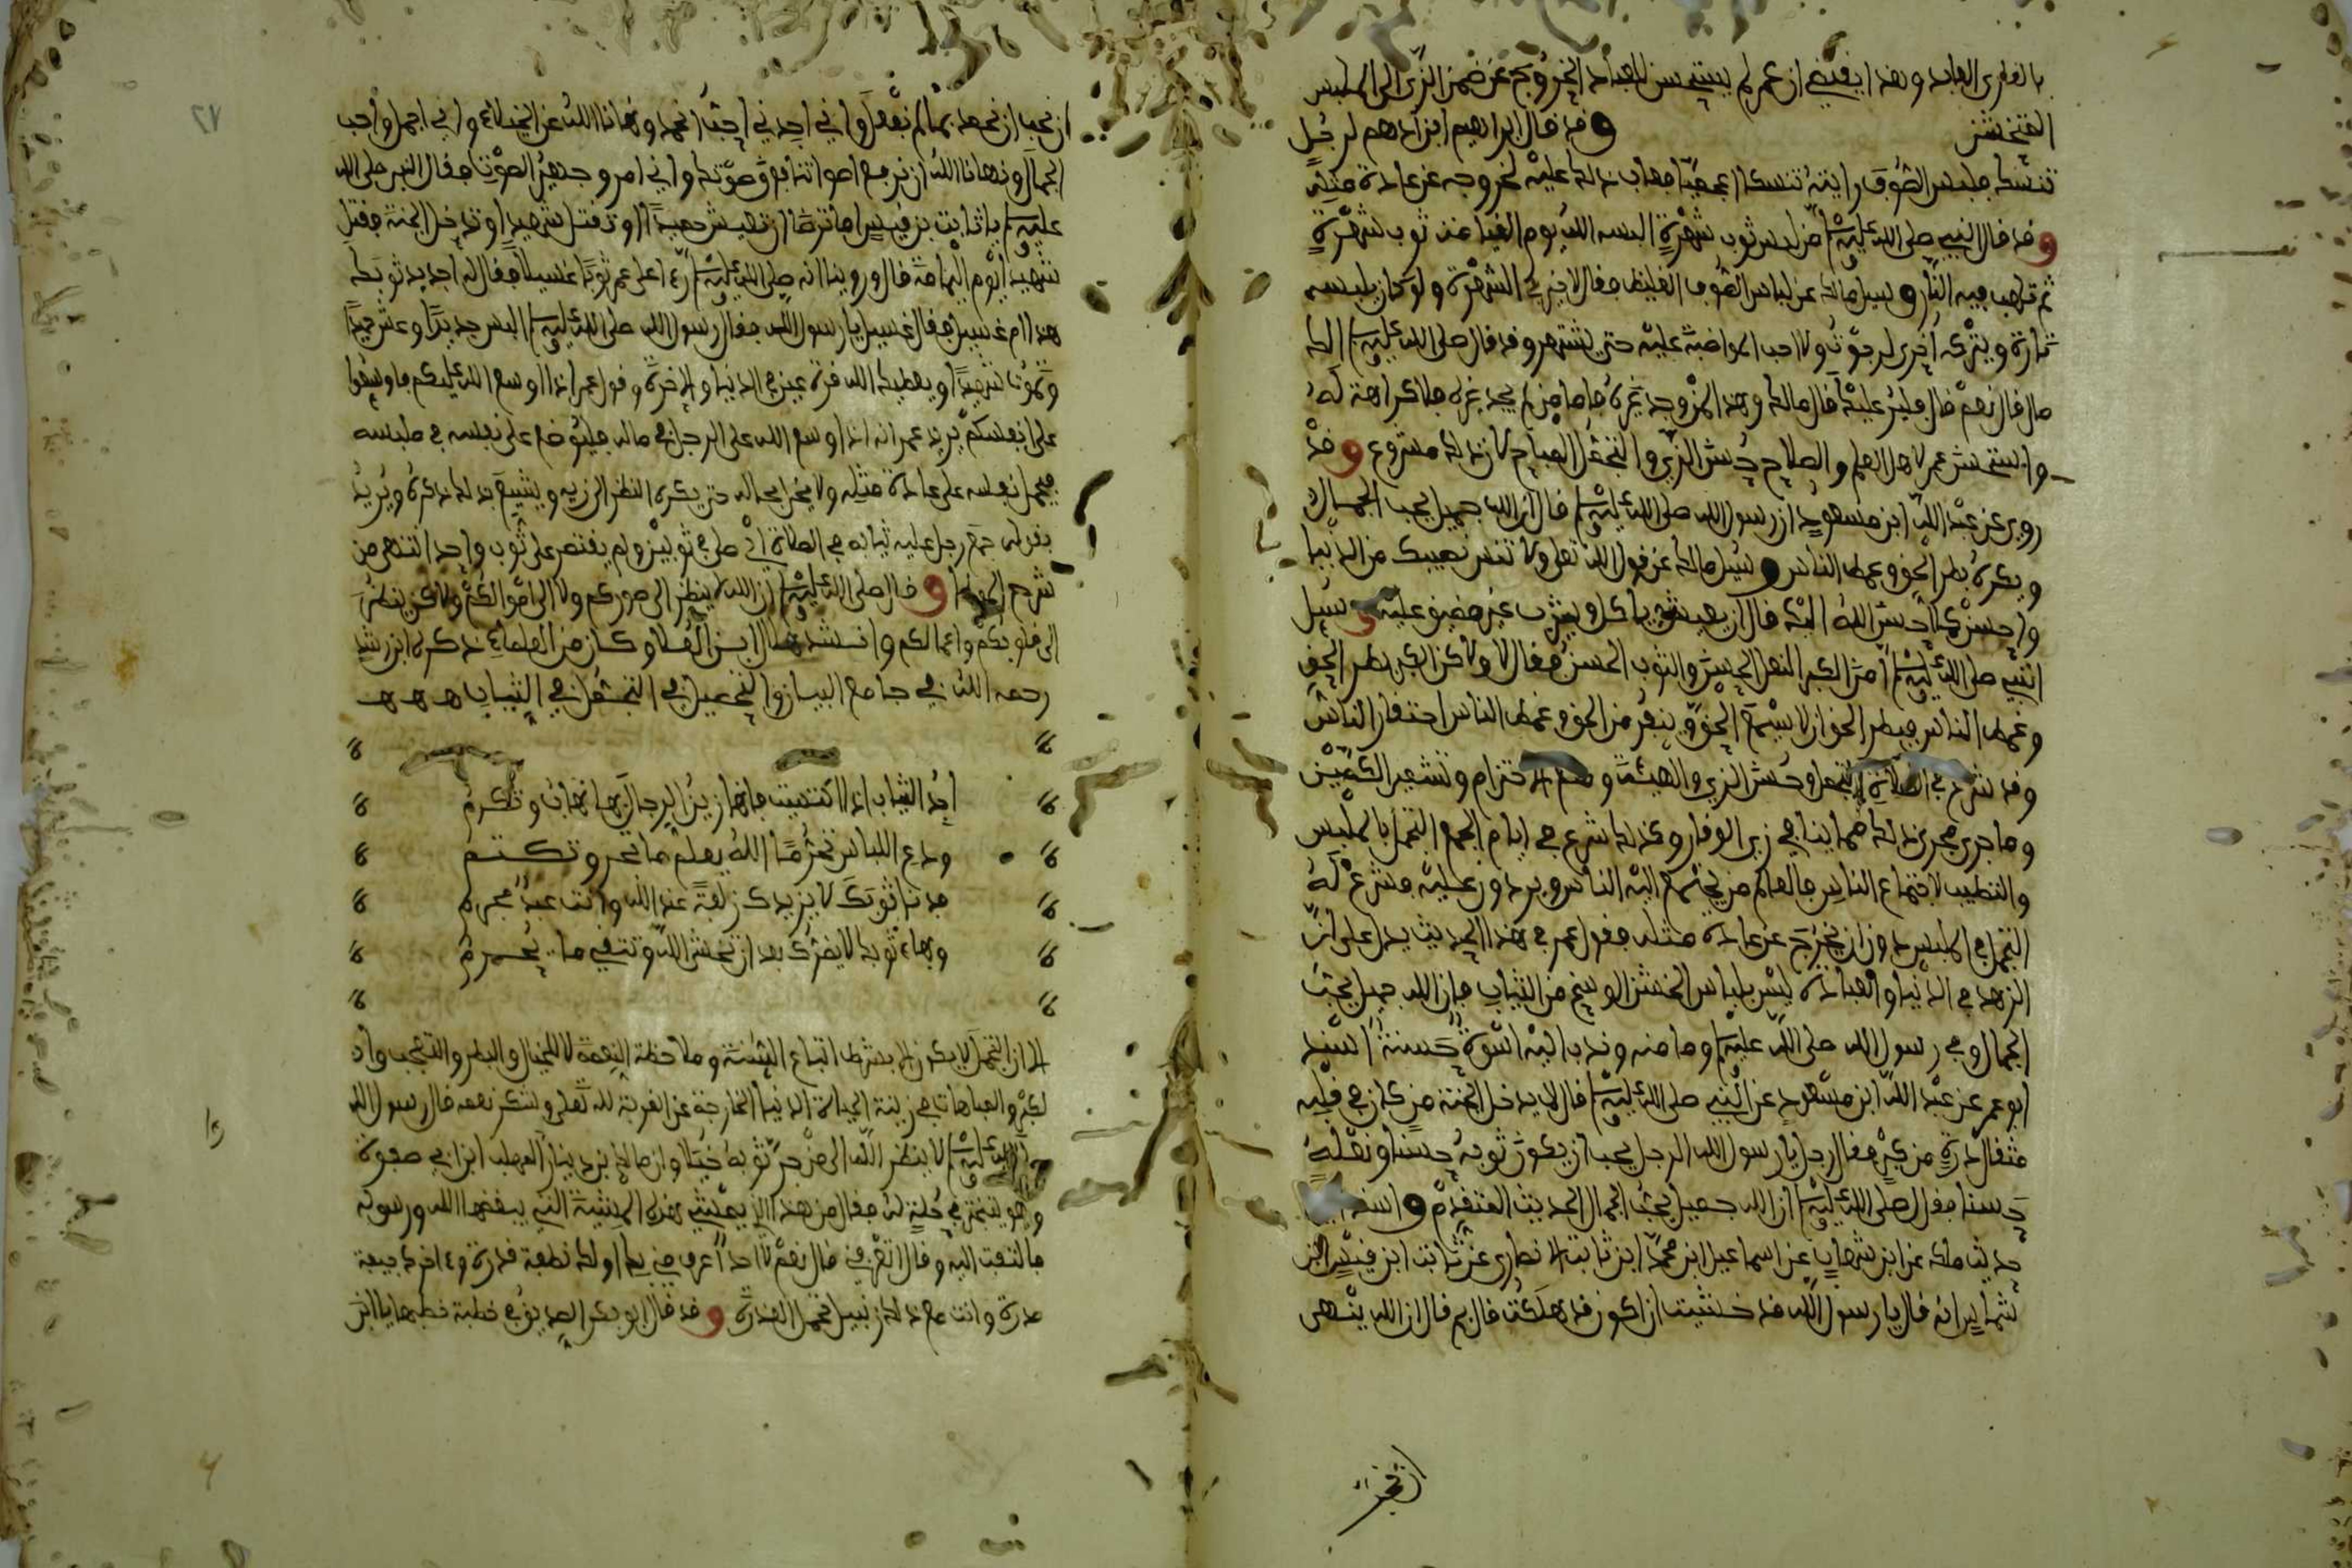 بالقارئ العابد وهذا يقتضي ان عمر لم يستحسن للعباد الخروج عن ضمن الزي الى الملبس
المتخشن وقد قال ابراهيم ابن ادهم لرجل
تنسك فلبس الصوف رايته تنسك اعجميا فعاب ذلك عليه لخروجه عن عادة مثله
وقد قال النبي صلى الله عليه وسلم من لبس ثوب شهرة البسه الله يوم القيامة ثوب شهرة
ثم تلهب فيه النار وسيل مالك عن لباس الصوف الغليظ فقال لا خير في الشهرة ولو كان يلبسه
تارة ويتركه اخرى لرجوت ولا احب المواضبة عليه حتى يشتهر وقد قال صلى الله عليه وسلم الك
مال قال نعم قال فلير عليك قال مالك وهذا لمن وجد غيره فاما من لم يجد غيره فلا كراهة له
واستحسن عمر لاهل العلم والصلاح حسن الزي والتجمل المباح لان ذلك مشروع وقد
روي عن عبد الله ابن مسعود ان رسول الله صلى الله عليه وسلم قال ان الله جميل يحب الجمال
ويكره بطر الحق وغمط الناس وسيل مالك عن قول الله تعلى ولا تنس نصيبك من الدنيا
واحسن كما احسن الله اليك قال ان يعيش وياكل ويشرب غير مضيق عليه وسيل
النبي صلى الله عليه وسلم امن الكبر النعل الحسن والثوب الحسن فقال لا ولاكن الكبر بطر الحق
وغمط الناس فبطر الحق ان لا يسمع الحق وينفر من الحق وغمط الناس احتقار الناس
وقد شرع في الصلاة التجمل وحسن الزي والهيئة وضم الاحتزام وتشمير الكمين
وما جرى مجرى ذلك مما ينافي زي الوقار وكذلك شرع في ايام الجمع التجمل بالملبس
والتطيب لاجتماع الناس فالعالم من يجتمع اليه الناس ويردون عليه مشرع له
التجمل في الملبس دون ان يخرج عن عادة مثله فقول عمر في هذا الحديث يدل على ان
الزهد في الدنيا والعبادة ليس بلباس الخشن الوسخ من الثياب فان الله جميل يحب
الجمال وفي رسول الله صلى الله عليه وما منه وندب اليه اسوة حسنة اسند
ابو عمر عن عبد الله ابن مسعود عن النبي صلى الله عليه وسلم قال لا يدخل الجنة من كان في قلبه
مثقال ذرة من كبر فقال رجل يا رسول الله الرجل يحب ان يكون ثوبه حسنا ونعله
حسنا فقال صلى الله عليه وسلم ان الله جميل يحب الجمال الحديث المتقدم واسند
حديث مالك عن ابن شهاب عن اسماعيل ابن محمد ابن ثابت الانصاري عن ثابت ابن قيس ابن
شماس انه قال يا رسول الله قد خشيت ان اكون قد هلكت قال بم قال ان الله ينهى
ان نحب ان نحمد بما لم نفعل واني اجدني احب الحمد ونهانا الله عن الخيلاء واني امرؤ احب
الجمال ونهانا الله ان نرفع اصواتنا فوق صوتك واني امرو جهير الصوت فقال النبي صلى الله
عليه وسلم يا ثابت بن قيس اما ترضى ان تعيش حميدا وتقتل شهيدا وتدخل الجنة فقتل
شهيدا يوم اليمامة قال وروينا انه صلى الله عليه وسلم رءا على عمر ثوبا غسيلا فقال له اجديد ثوبك
هذا ام غسيل فقال غسيل يا رسول الله فقال رسول الله صلى الله عليه وسلم البس جديدا وعش حميدا
وتموت شهيدا ويعطيك الله قرة عين في الدنيا والاخرة وقول عمر اذا اوسع الله عليكم فاوسعوا
على انفسكم يريد عمر انه اذا اوسع الله على الرجل في ماله فليوسع على نفسه في ملبسه
فيحمل نفسه على عادة مثله ولا يخل بحاله حتى يكره النظر الى زيه ويشيع بذلك ذكره ويريد
بقوله جمع رجل عليه ثيابه في الصلاة اي صلى في ثوبين ولم يقتصر على ثوب واحد انتهى من
شرح الموطا وقال صلى الله عليه وسلم ان الله لا ينظر الى صوركم ولا الى اموالكم ولاكن ينظر
الى قلوبكم واعمالكم وانشد هلال ابن العلا وكان من العلماء ذكره ابن رشد
رحمه الله في جامع البيان والتحصيل في التجمل في الثياب ه ه ه
اجد الثياب اذا اكتسيت فانها زين الرجال بها تهاب وتكرم
ودع اللباس تحرما الله يعلم ما تجن وتكتم
فدنا ثوبك لا يزيدك زلفة عند الله وانت عبد مجرم
وبهاء ثوبك لا يضرك بعد ان تخشى الله وتتقي ما يحرم
الا ان التجمل لا يكون الا بشرط اتباع السنة وملاحظة النعمة لا للخيلا والبطر والتعجب واذ
لكبر والمباهات في زينة الحياة الدنيا الخارجة عن القربة لله تعلى وشكر نعمه قال رسول الله
صلى الله عليه وسلم لا ينظر الله الى من جر ثوبه خيلا وان مالك بن دينار را المهلب ابن ابي صفرة
وهو يتبختر في حلة له فقال من هذا الذي يمشي هذه المشية التي يبغضها الله ورسوله
فالتفت اليه وقال اتعرفني قال نعم لا احد اعرف مني بك اولك نطفة قذرة وءاخرك جيفة
مذرة وانت مع ذلك زنبيل تحمل العذرة وقد قال ابو بكر الصديق في خطبة خطبها يا ابن